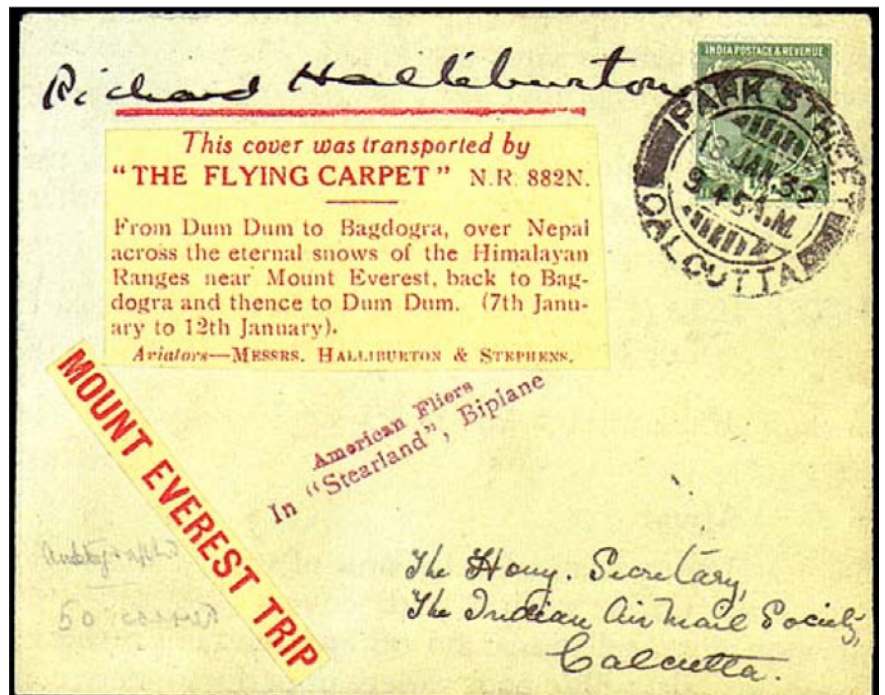 Richard Halliburton
INDIA POSTAGE & REVENUE
PARK STREET
18 JAN. 32
9.45 A.M.
CALCUTTA
This cover was transported by
"THE FLYING CARPET" N.R. 882N.
From Dum Dum to Bagdogra, over Nepal
across the eternal snows of the Himalayan
Ranges near Mount Everest, back to Bag-
dogra and thence to Dum Dum. (7th Janu-
ary to 12th January).
Aviators—MESSRS. HALLIBURTON & STEPHENS.
MOUNT EVEREST TRIP
American Fliers
In "Stearland", Biplane
The Hony. Secretary,
The Indian Air Mail Society,
Calcutta.
50